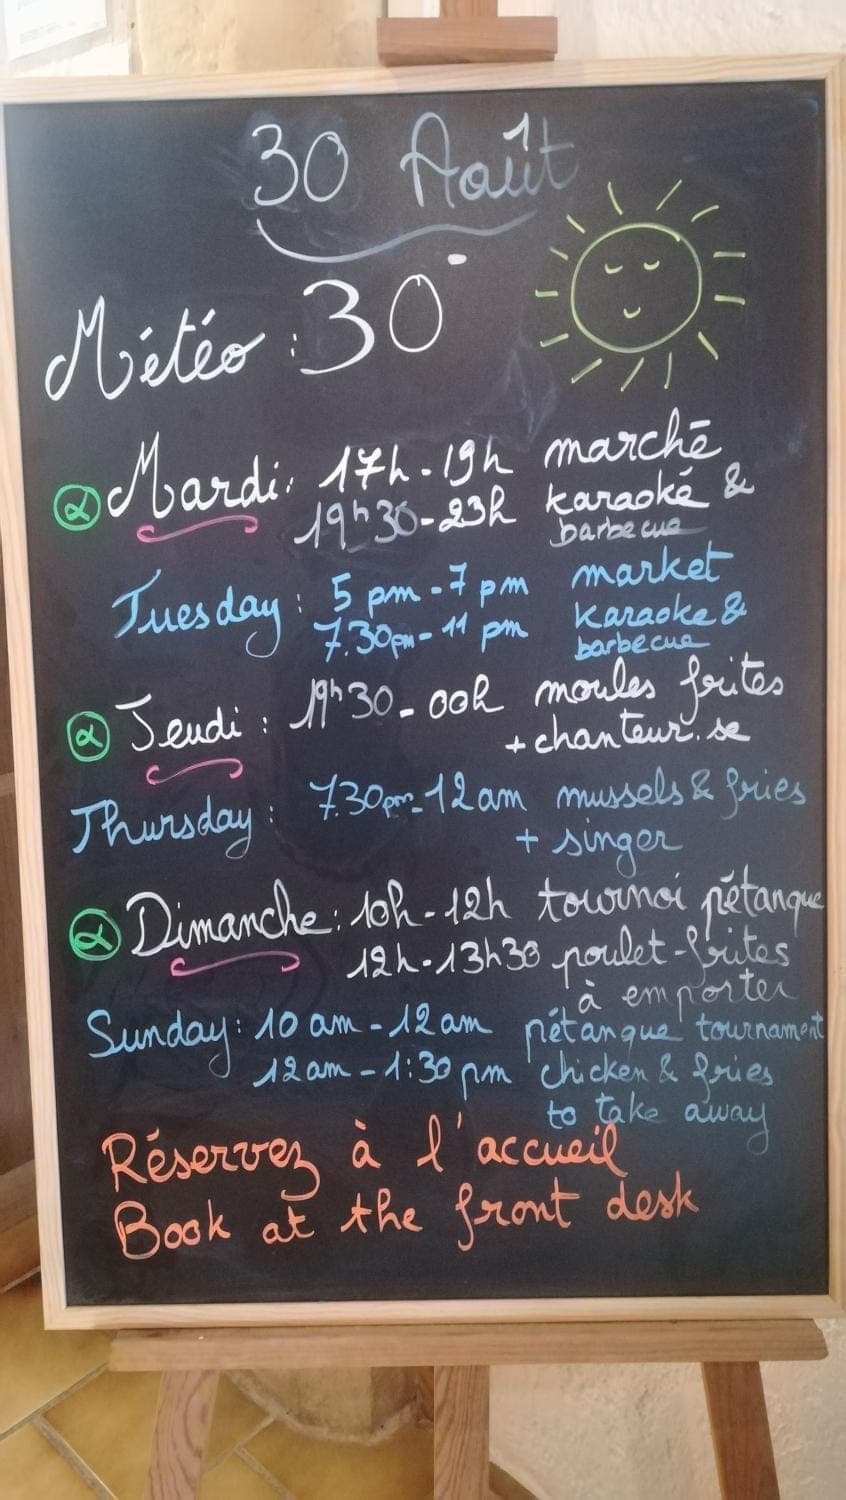 30 Août
Météo : 30°
α Mardi : 17h - 19h marché
19h30 - 23h karaoké &
barbecue
Tuesday : 5 pm - 7 pm market
7.30pm - 11 pm karaoke &
barbecue
α Jeudi : 19h30 - 00h moules frites
+ chanteur.se
Thursday : 7.30pm - 12 am mussels & fries
+ singer
α Dimanche : 10h - 12h tournoi pétanque
12h - 13h30 poulet-frites
à emporter
Sunday : 10 am - 12 am pétanque tournament
12 am - 1:30 pm chicken & fries
to take away
Réservez à l'accueil
Book at the front desk